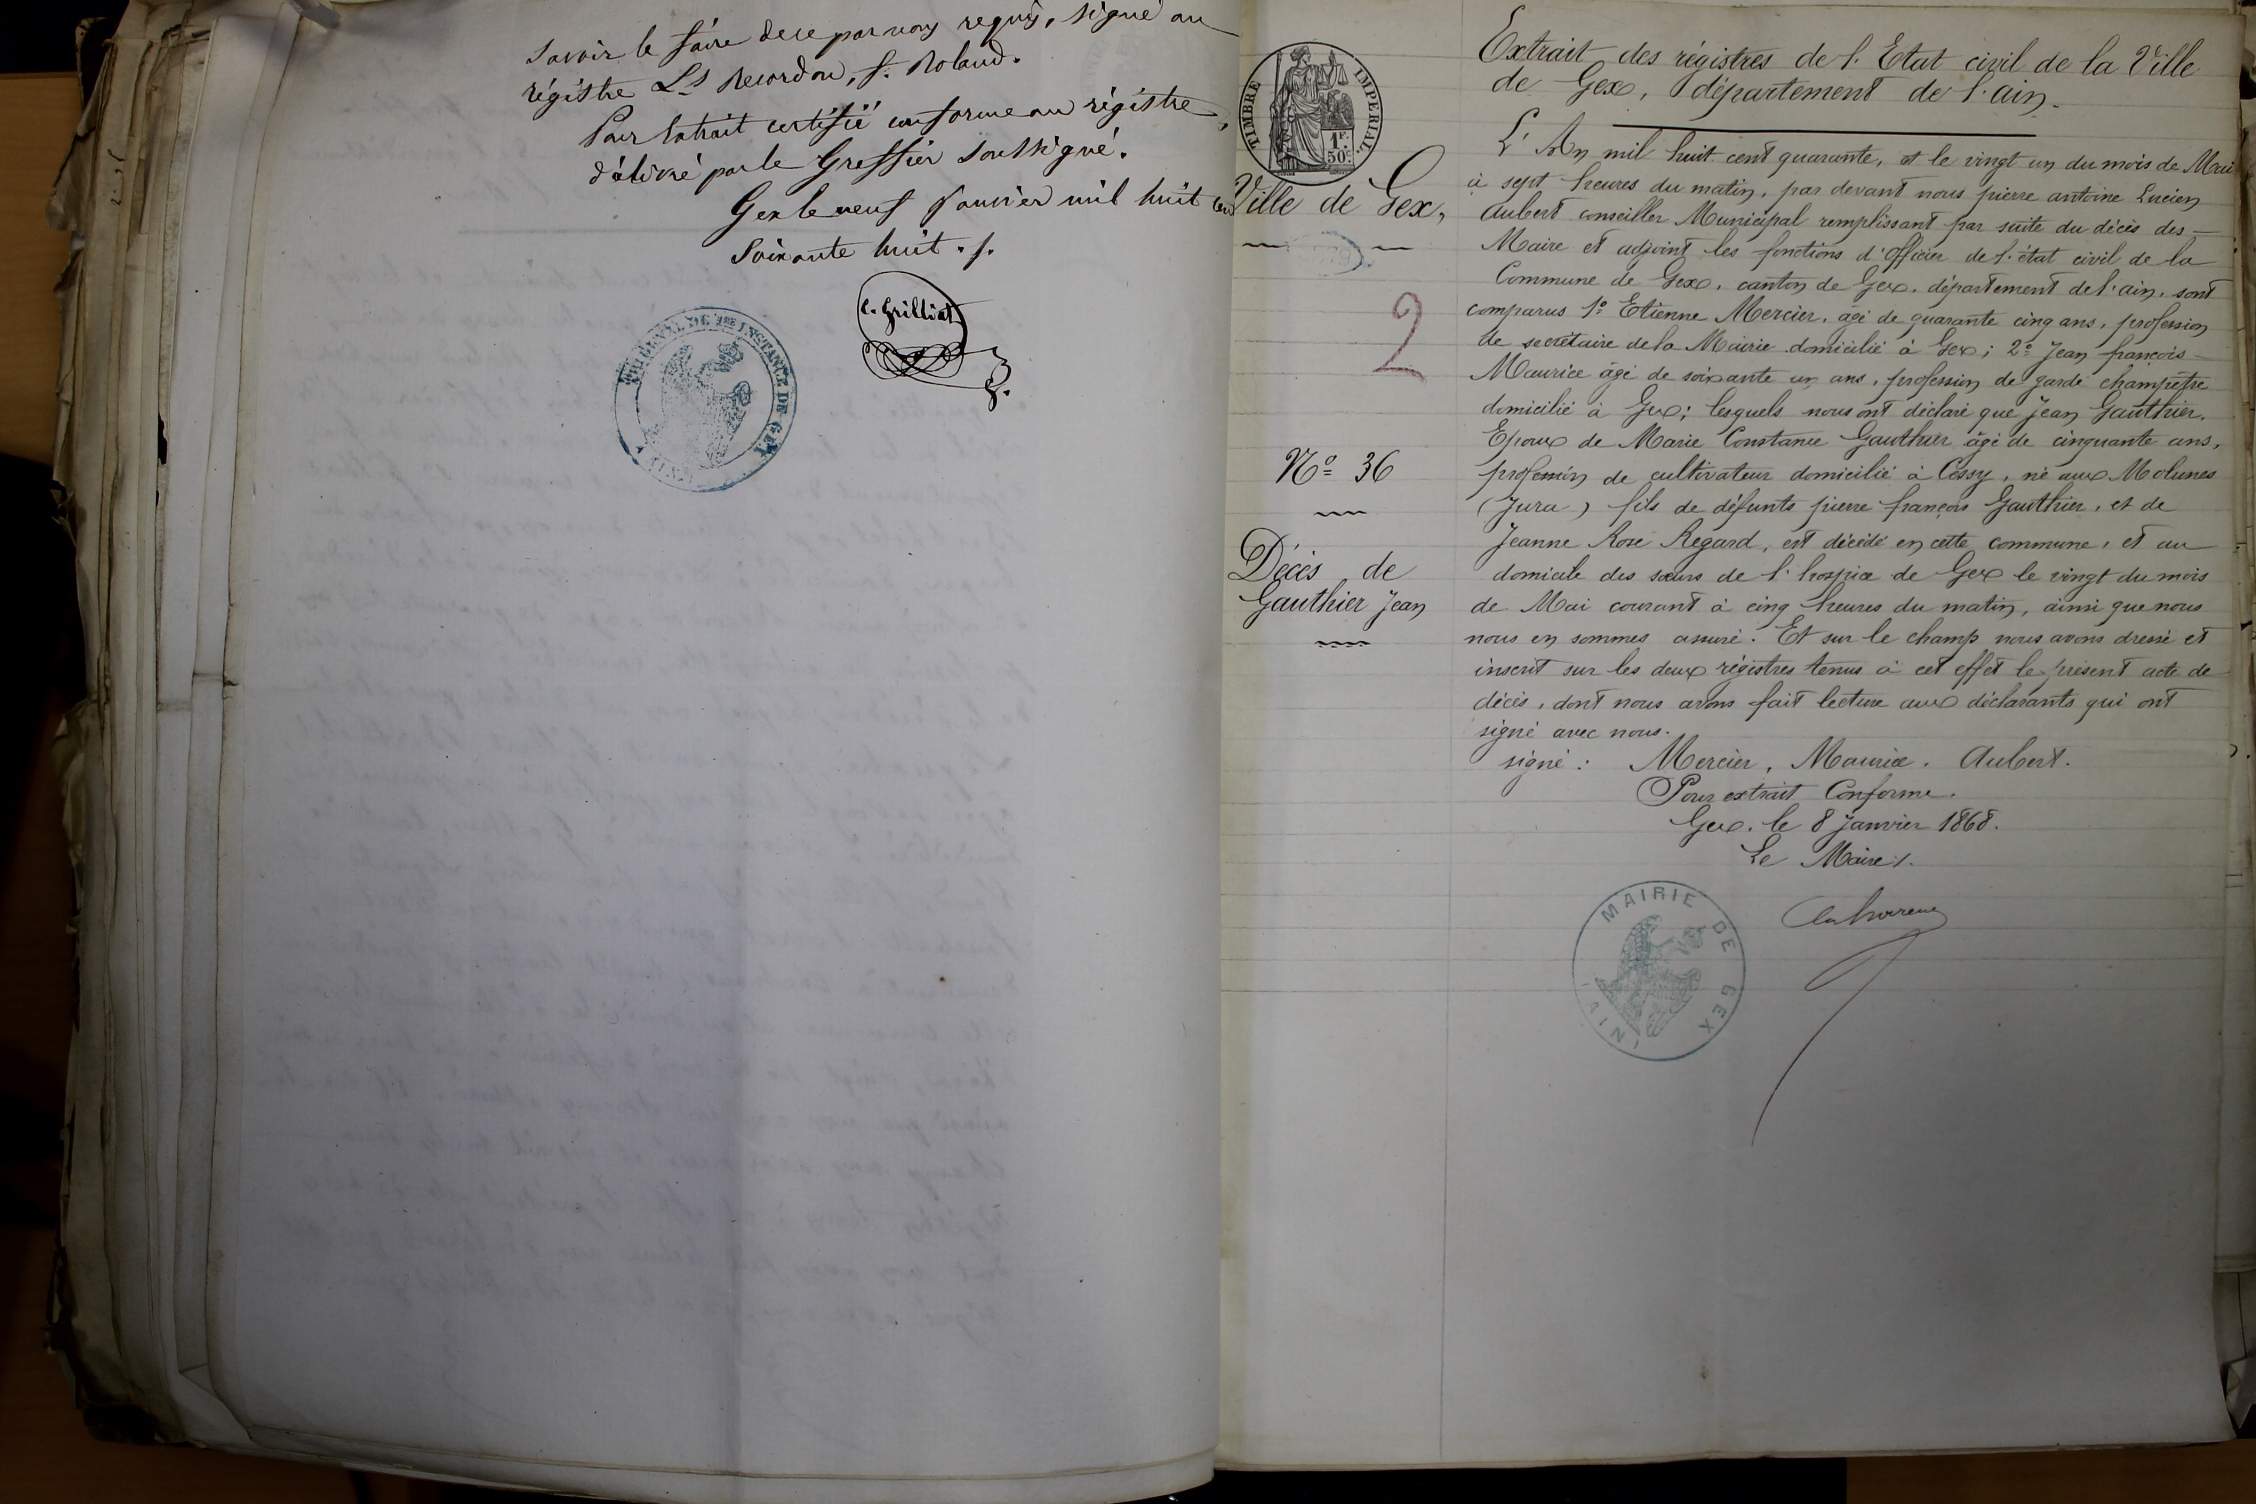 savoir le faire de ce par nous requis, signé au
régistre Ls Recordon, f. Roland.
Pour Extrait certifié conforme au régistre,
délivré par le Greffier soussigné.
Gex le neuf Janvier mil huit cent
soixante huit. /.
C. Grilliet
TRIBUNAL DE 1RE INSTANCE DE GEX
(AIN)
TIMBRE IMPERIAL
1F. 50C.
Ville de Gex,
2
No 36
Décès de
Gauthier Jean
Extrait des régistres de l'Etat civil de la Ville
de Gex, département de l'ain.
L'An mil huit cent quarante, et le vingt un du mois de Mai
à sept heures du matin, par devant nous pierre antoine Lucien
Aubert conseiller Municipal remplissant par suite du décès des
Maire et adjoint les fonctions d'Officier de l'état civil de la
Commune de Gex, canton de Gex, département de l'ain, sont
comparus 1o Etienne Mercier, âgé de quarante cinq ans, profession
de secrétaire de la Mairie domicilié à Gex; 2o Jean françois
Maurice âgé de soixante un ans, profession de garde champêtre
domicilié à Gex; lesquels nous ont déclaré que Jean Gauthier,
Epoux de Marie Constance Gauthier âgé de cinquante ans,
profession de cultivateur domicilié à Cessy, né aux Molunes
(Jura) fils de défunts pierre françois Gauthier, et de
Jeanne Rose Regard, est décédé en cette commune, et au
domicile des sœurs de l'hospice de Gex le vingt du mois
de Mai courant à cinq heures du matin, ainsi que nous
nous en sommes assuré. Et sur le champ nous avons dressé et
inscrit sur les deux régistres tenus à cet effet le présent acte de
décès, dont nous avons fait lecture aux déclarants qui ont
signé avec nous.
signé: Mercier, Maurice, Aubert.
Pour extrait Conforme.
Gex, le 8 Janvier 1868.
Le Maire /.
MAIRIE DE GEX
(AIN)